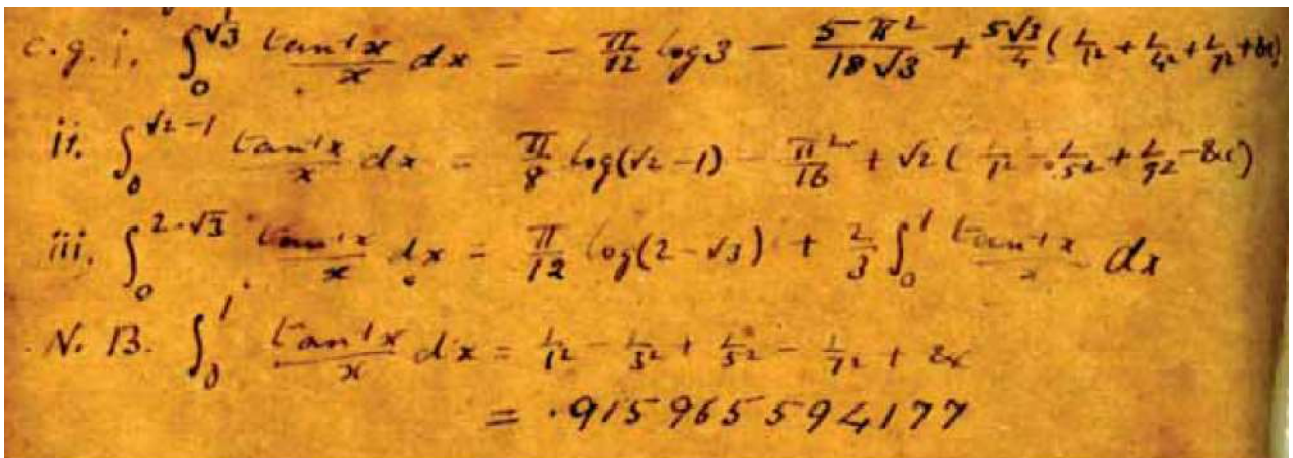 e.g. i. ∫₀^{1/√3} tan⁻¹x/x dx = - π/12 log 3 - 5π²/18√3 + 5√3/4 (1/1² + 1/4² + 1/7² + &c)
ii. ∫₀^{√2-1} tan⁻¹x/x dx = π/8 log(√2-1) - π²/16 + √2 (1/1² - 1/5² + 1/9² - &c)
iii. ∫₀^{2-√3} tan⁻¹x/x dx = π/12 log(2-√3) + 2/3 ∫₀^1 tan⁻¹x/x dx
N. B. ∫₀^1 tan⁻¹x/x dx = 1/1² - 1/3² + 1/5² - 1/7² + &c
= .915965594177